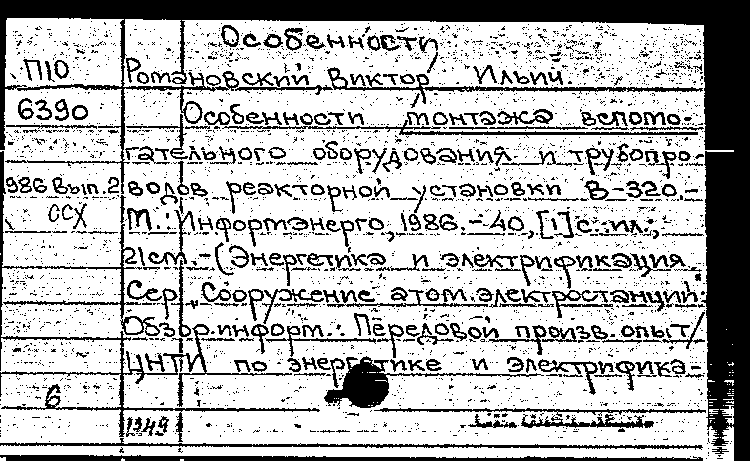 Особенности
П10 Романовский, Виктор Ильич.
6390 Особенности монтажа вспомо-
гательного оборудования и трубопро-
986 Вып.2 водов реакторной установки В-320.-
ОСХ М.: Информэнерго, 1986.-40,[1]с.:ил.;
21см.-(Энергетика и электрификация.
Сер. „Сооружение атом.электростанций:
Обзор.информ.: Передовой произв.опыт/
ЦНТИ по энергетике и электрифика-
6
1349